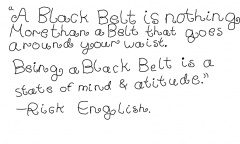 "A Black Belt is nothing
More than a Belt that goes
around your waist.
Being a Black Belt is a
state of mind & atitude."
-Rick English.